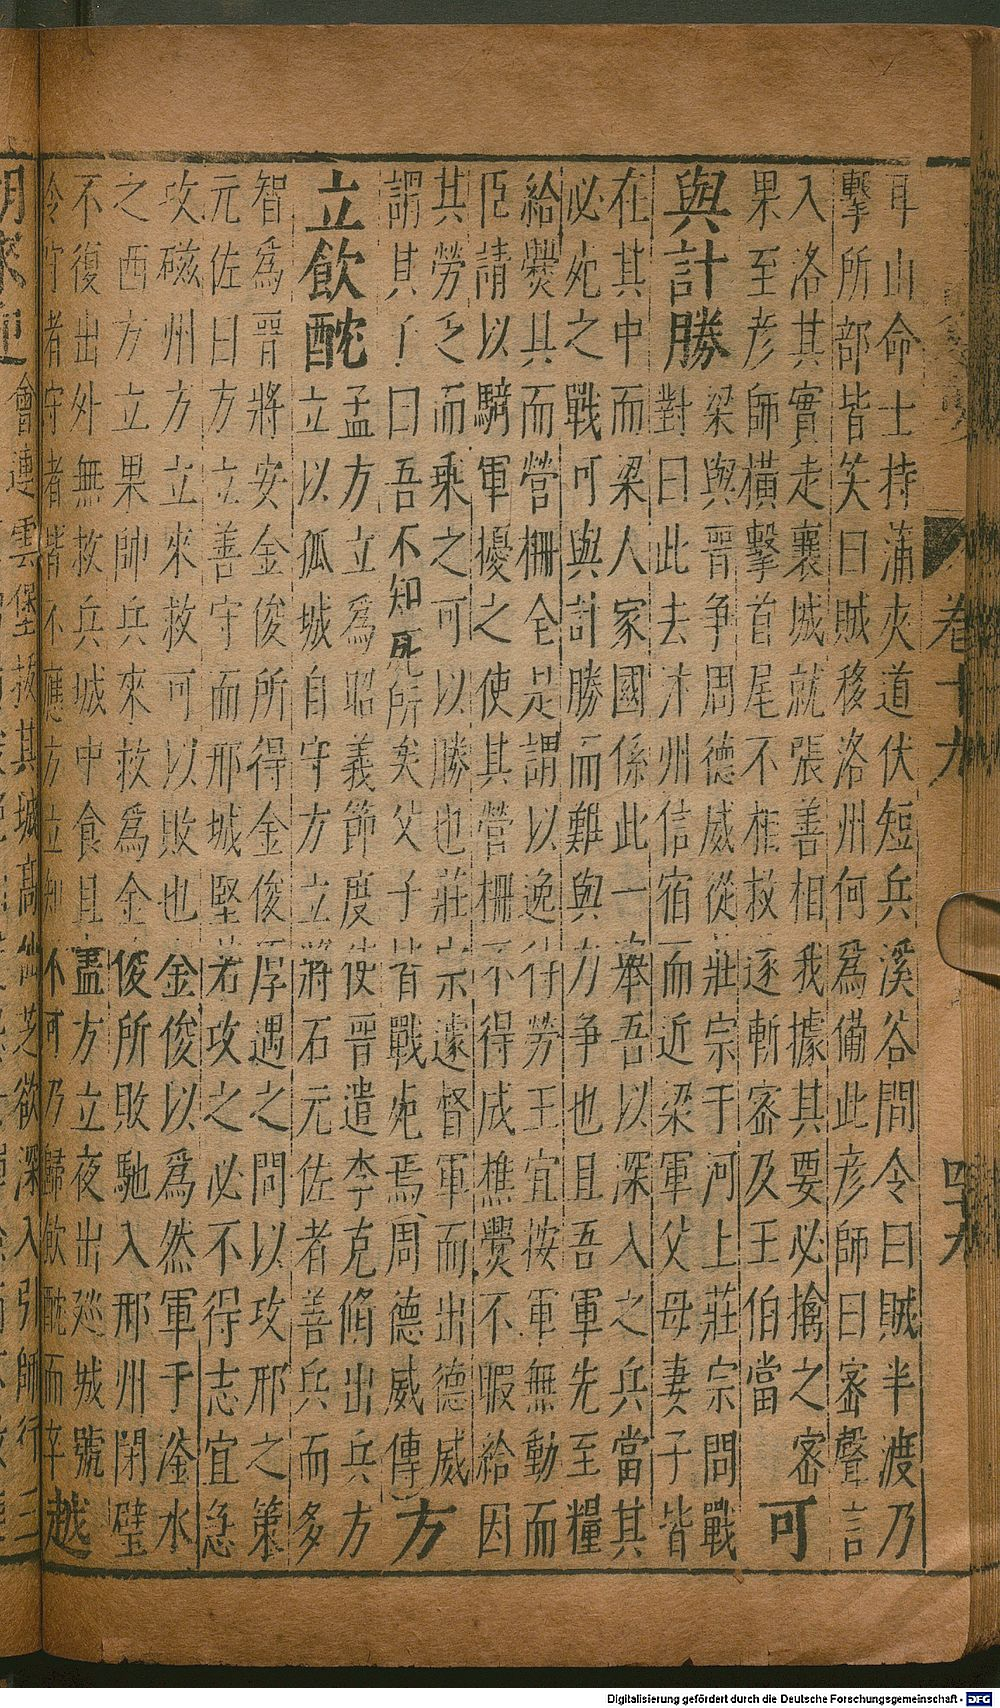 耳山命士持蒲夾道伏短兵溪谷間令曰賊半渡乃
擊所部皆笑曰賊移洛州何爲備此彥師曰密聲言
入洛其實走襄城就張善相我據其要必擒之密
果至彥師橫擊首尾不相救遂斬密及王伯當 可
與計勝 梁與晉爭周德威從莊宗于河上莊宗問戰
對曰此去汴州信宿而近梁軍父母妻子皆
在其中而梁人家國係此一舉吾以深入之兵當其
必死之戰可與計勝而難與力爭也且吾軍先至糧
給爨具而營柵全是謂以逸待勞王宜按軍無動而
臣請以騎軍擾之使其營柵不得成樵爨不暇給因
其勞乏而乘之可以勝也莊宗遽督軍而出德威
謂其子曰吾不知死所矣父子皆戰死焉周德威傳 方
立飲酖 孟方立爲昭義節度使晉遣李克脩出兵方
立以孤城自守方立將石元佐者善兵而多
智爲晉將安金俊所得金俊厚遇之問以攻邢之策
元佐曰方立善守而邢城堅若攻之必不得志宜急
攻磁州方立來救可以敗也金俊以爲然軍于滏水
之西方立果帥兵來救爲金俊所敗馳入邢州閉壁
不復出外無救兵城中食且盡方立夜出巡城號
令守者守者皆不應方立知不可乃歸飲酖而卒 越
卷十九
四十九
會連雲堡
其城高
芝欲深入引師行三
Digitalisierung gefördert durch die Deutsche Forschungsgemeinschaft - DFG